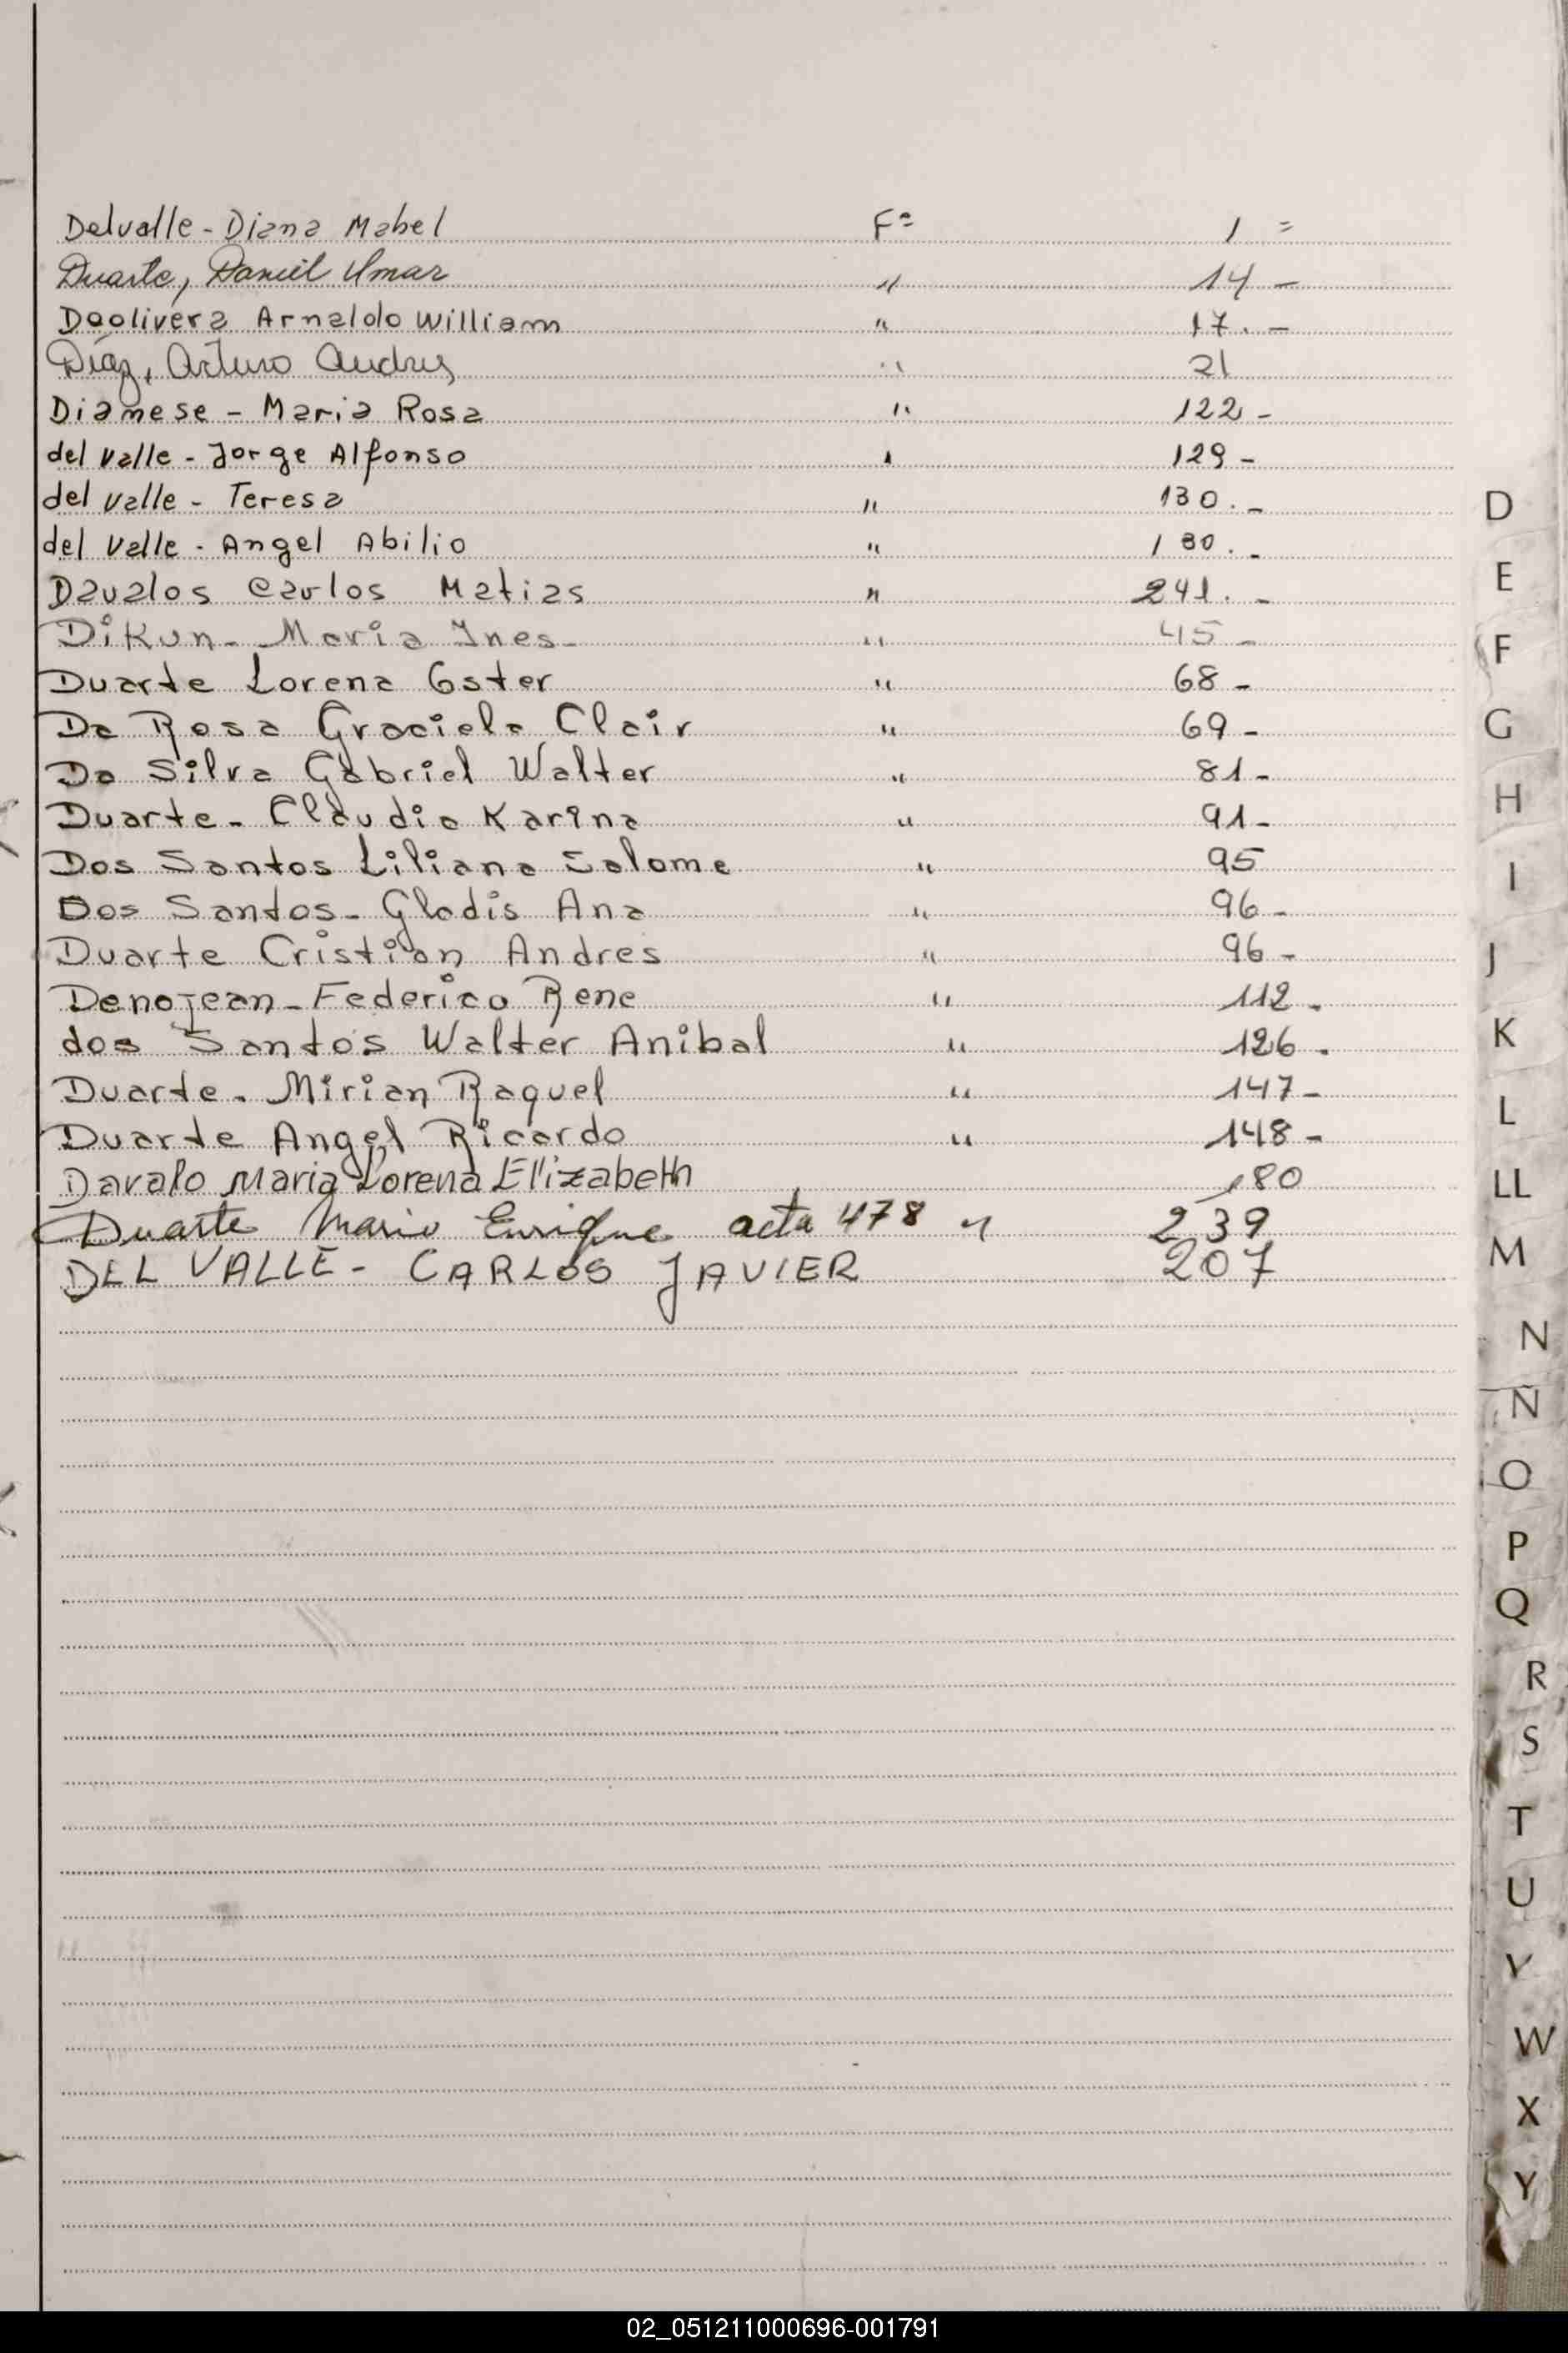 Delvalle - Diana Mabel Fº 1 =
Duarte, Daniel Omar " 14 -
Deolivera Arnaldo William " 17. -
Díaz, Arturo Andres " 21
Dianese - Maria Rosa " 122 -
del Valle - Jorge Alfonso " 129 -
del Valle - Teresa " 130. -
del Valle - Angel Abilio " 130. -
Davalos Carlos Matias " 241. -
DiKun - Maria Ines - " 45 -
Duarte Lorena Ester " 68 -
Da Rosa Graciela Clair " 69 -
Da Silva Gabriel Walter " 81 -
Duarte - Claudia Karina " 91 -
Dos Santos Liliana Salome " 95
Dos Santos - Gladis Ana " 96 -
Duarte Cristian Andres " 96 -
Denojean - Federico Rene " 112 -
dos Santos Walter Anibal " 126 -
Duarte - Mirian Raquel " 147 -
Duarte Angel Ricardo " 148 -
Davalo Maria Lorena Elizabeth 180
Duarte Mario Enrique acta 478 " 239
DEL VALLE - CARLOS JAVIER 207
D
E
F
G
H
I
J
K
L
LL
M
N
Ñ
O
P
Q
R
S
T
U
V
W
X
Y
02_051211000696-001791